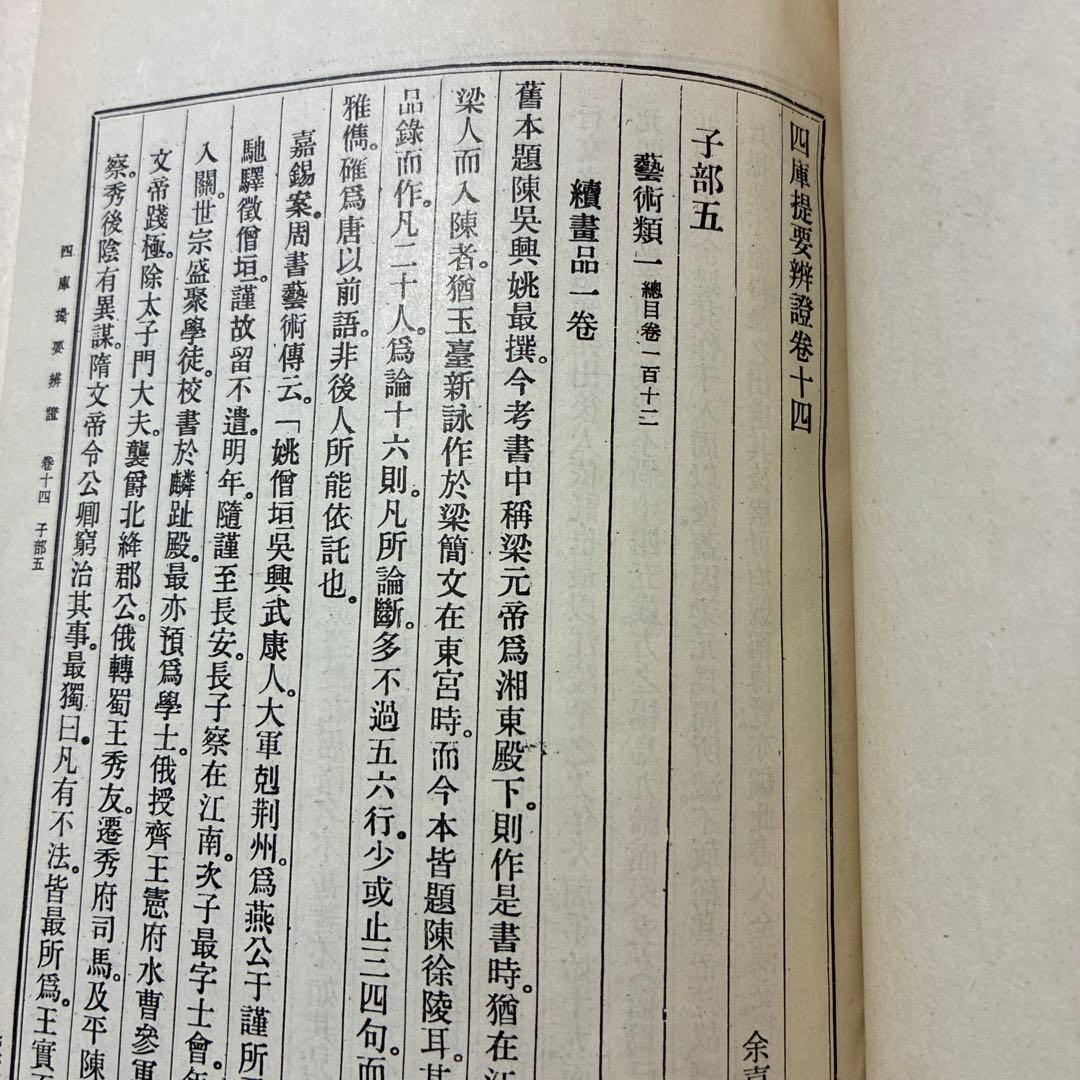 四庫提要辨證卷十四
余
子部五
藝術類一 總目卷一百十二
續畫品一卷
舊本題陳吳興姚最撰。今考書中稱梁元帝爲湘東殿下。則作是書時。猶在江
梁人而入陳者。猶玉臺新詠作於梁簡文在東宮時。而今本皆題陳徐陵耳。其
品錄而作。凡二十人。爲論十六則。凡所論斷。多不過五六行。少或止三四句。而
雅儁。確爲唐以前語。非後人所能依託也。
嘉錫案。周書藝術傳云。「姚僧垣吳興武康人。大軍剋荆州。爲燕公于謹所
馳驛徵僧垣。謹故留不遣。明年。隨謹至長安。長子察在江南。次子最字士會。年
入關。世宗盛聚學徒。校書於麟趾殿。最亦預爲學士。俄授齊王憲府水曹參軍
文帝踐極。除太子門大夫。襲爵北絳郡公。俄轉蜀王秀友。遷秀府司馬。及平陳
察秀後陰有異謀。隋文帝令公卿窮治其事。最獨曰。凡有不法。皆最所爲。王實不
四庫提要辨證 卷十四 子部五